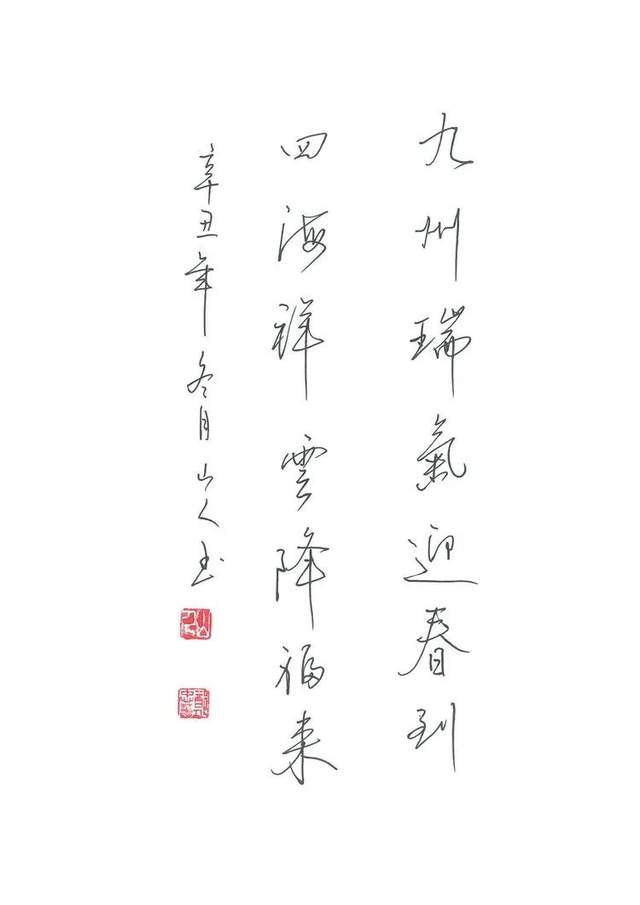 九州瑞氣迎春到
四海祥雲降福来
辛丑年冬月山人书